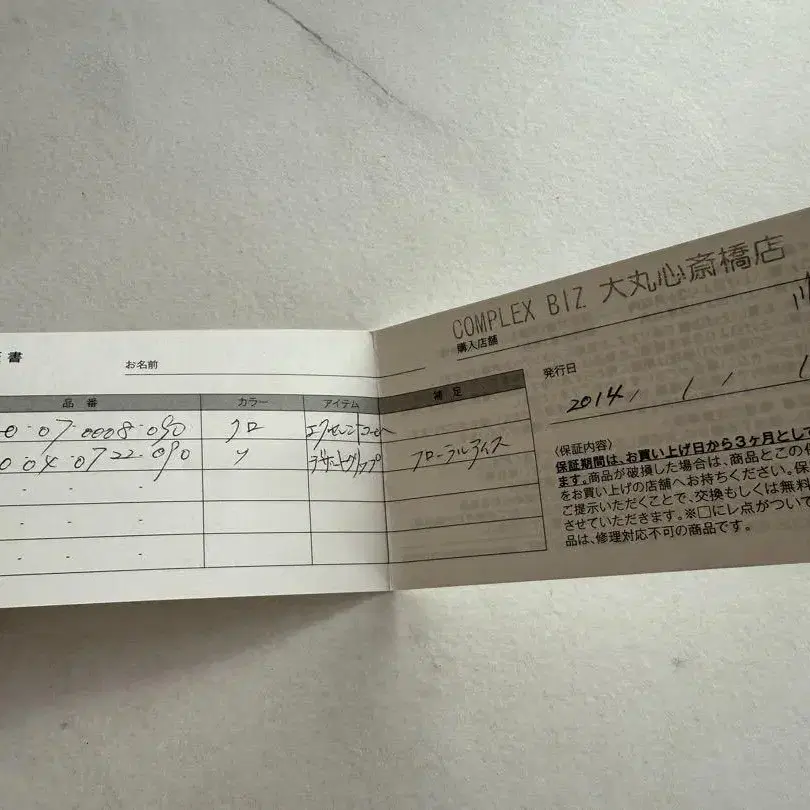 書
お名前
品番 カラー アイテム 補足
0-07-0008-090 クロ
0-04-0722-090 〃 フローラルアイス
COMPLEX BIZ 大丸心斎橋店
購入店舗
発行日
2014/ 1 /
〈保証内容〉
保証期間は、お買い上げ日から3ヶ月とし
ます。商品が破損した場合は、商品とこの
をお買い上げの店舗へお持ちください。保
ご提示いただくことで、交換もしくは無料
させていただきます。※□にレ点がついて
品は、修理対応不可の商品です。